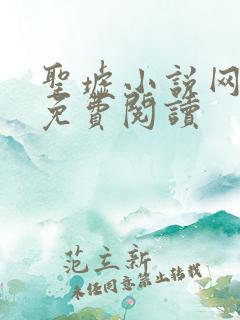 聖墟小說网
免費閱讀
范立新
未经同意禁止转载